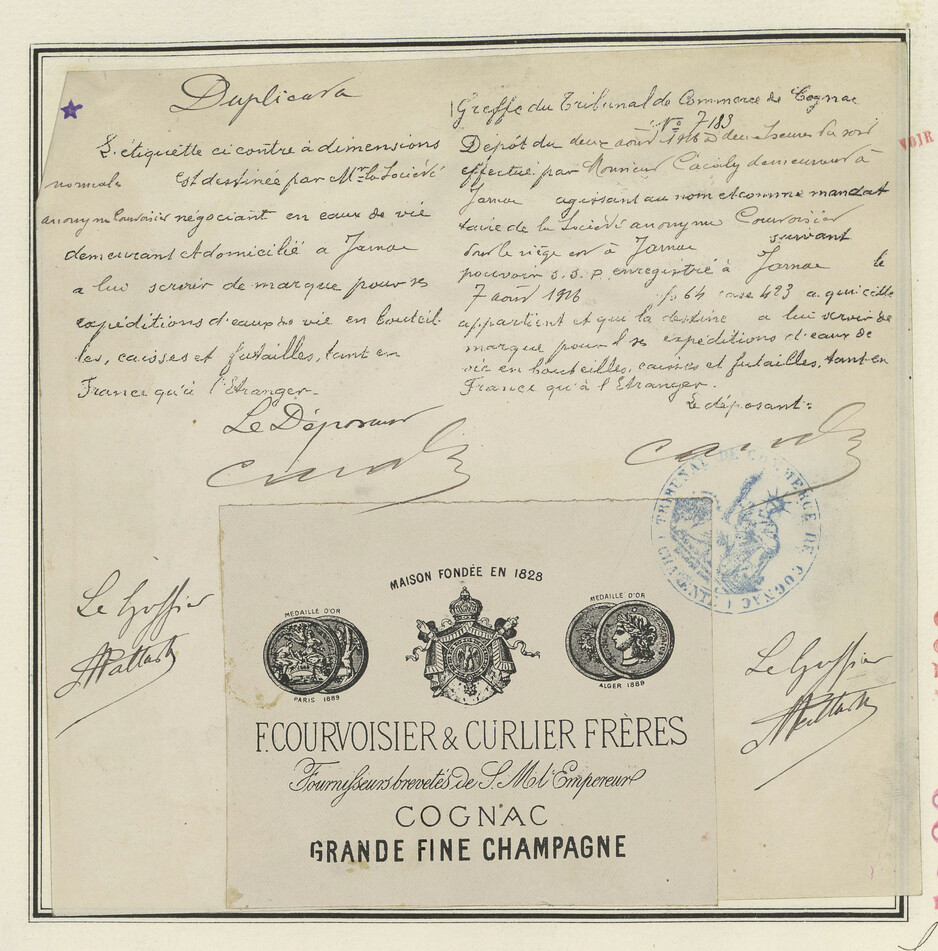 Duplicata
L'étiquette ci contre à dimensions
normale est destinée par Mr la Société
anonyme Courvoisier négociant en eaux de vie
demeurant et domicilié a Jarnac
a lui servir de marque pour ses
expéditions d'eaux de vie en bouteil-
les, caisses et futailles, tant en
France qu'à l'Etranger.
Le Déposant
Greffe du Tribunal de Commerce de Cognac
No 7183
Dépôt du deux août 1916 deux heures du soir
effectué par Monsieur demeurant à
Jarnac agissant au nom et comme mandat
taire de la Société anonyme Courvoisier
dont le siège est à Jarnac suivant
pouvoir s.s.p enregistré à Jarnac le
7 août 1916 fo 64 case 423 a qui elle
appartient et que la destine a lui servir de
marque pour ses expéditions d'eaux de
vie en bouteilles, caisses et futailles, tant en
France qu'à l'Etranger.
Le déposant:
TRIBUNAL DE COMMERCE DE COGNAC
(CHARENTE)
Le Greffier
Le Greffier
MAISON FONDÉE EN 1828
MEDAILLE D'OR
PARIS 1889
MEDAILLE D'OR
ALGER 1889
F. COURVOISIER & CURLIER FRÈRES
Fournisseurs brevetés de S. M. l'Empereur
COGNAC
GRANDE FINE CHAMPAGNE
VOIR